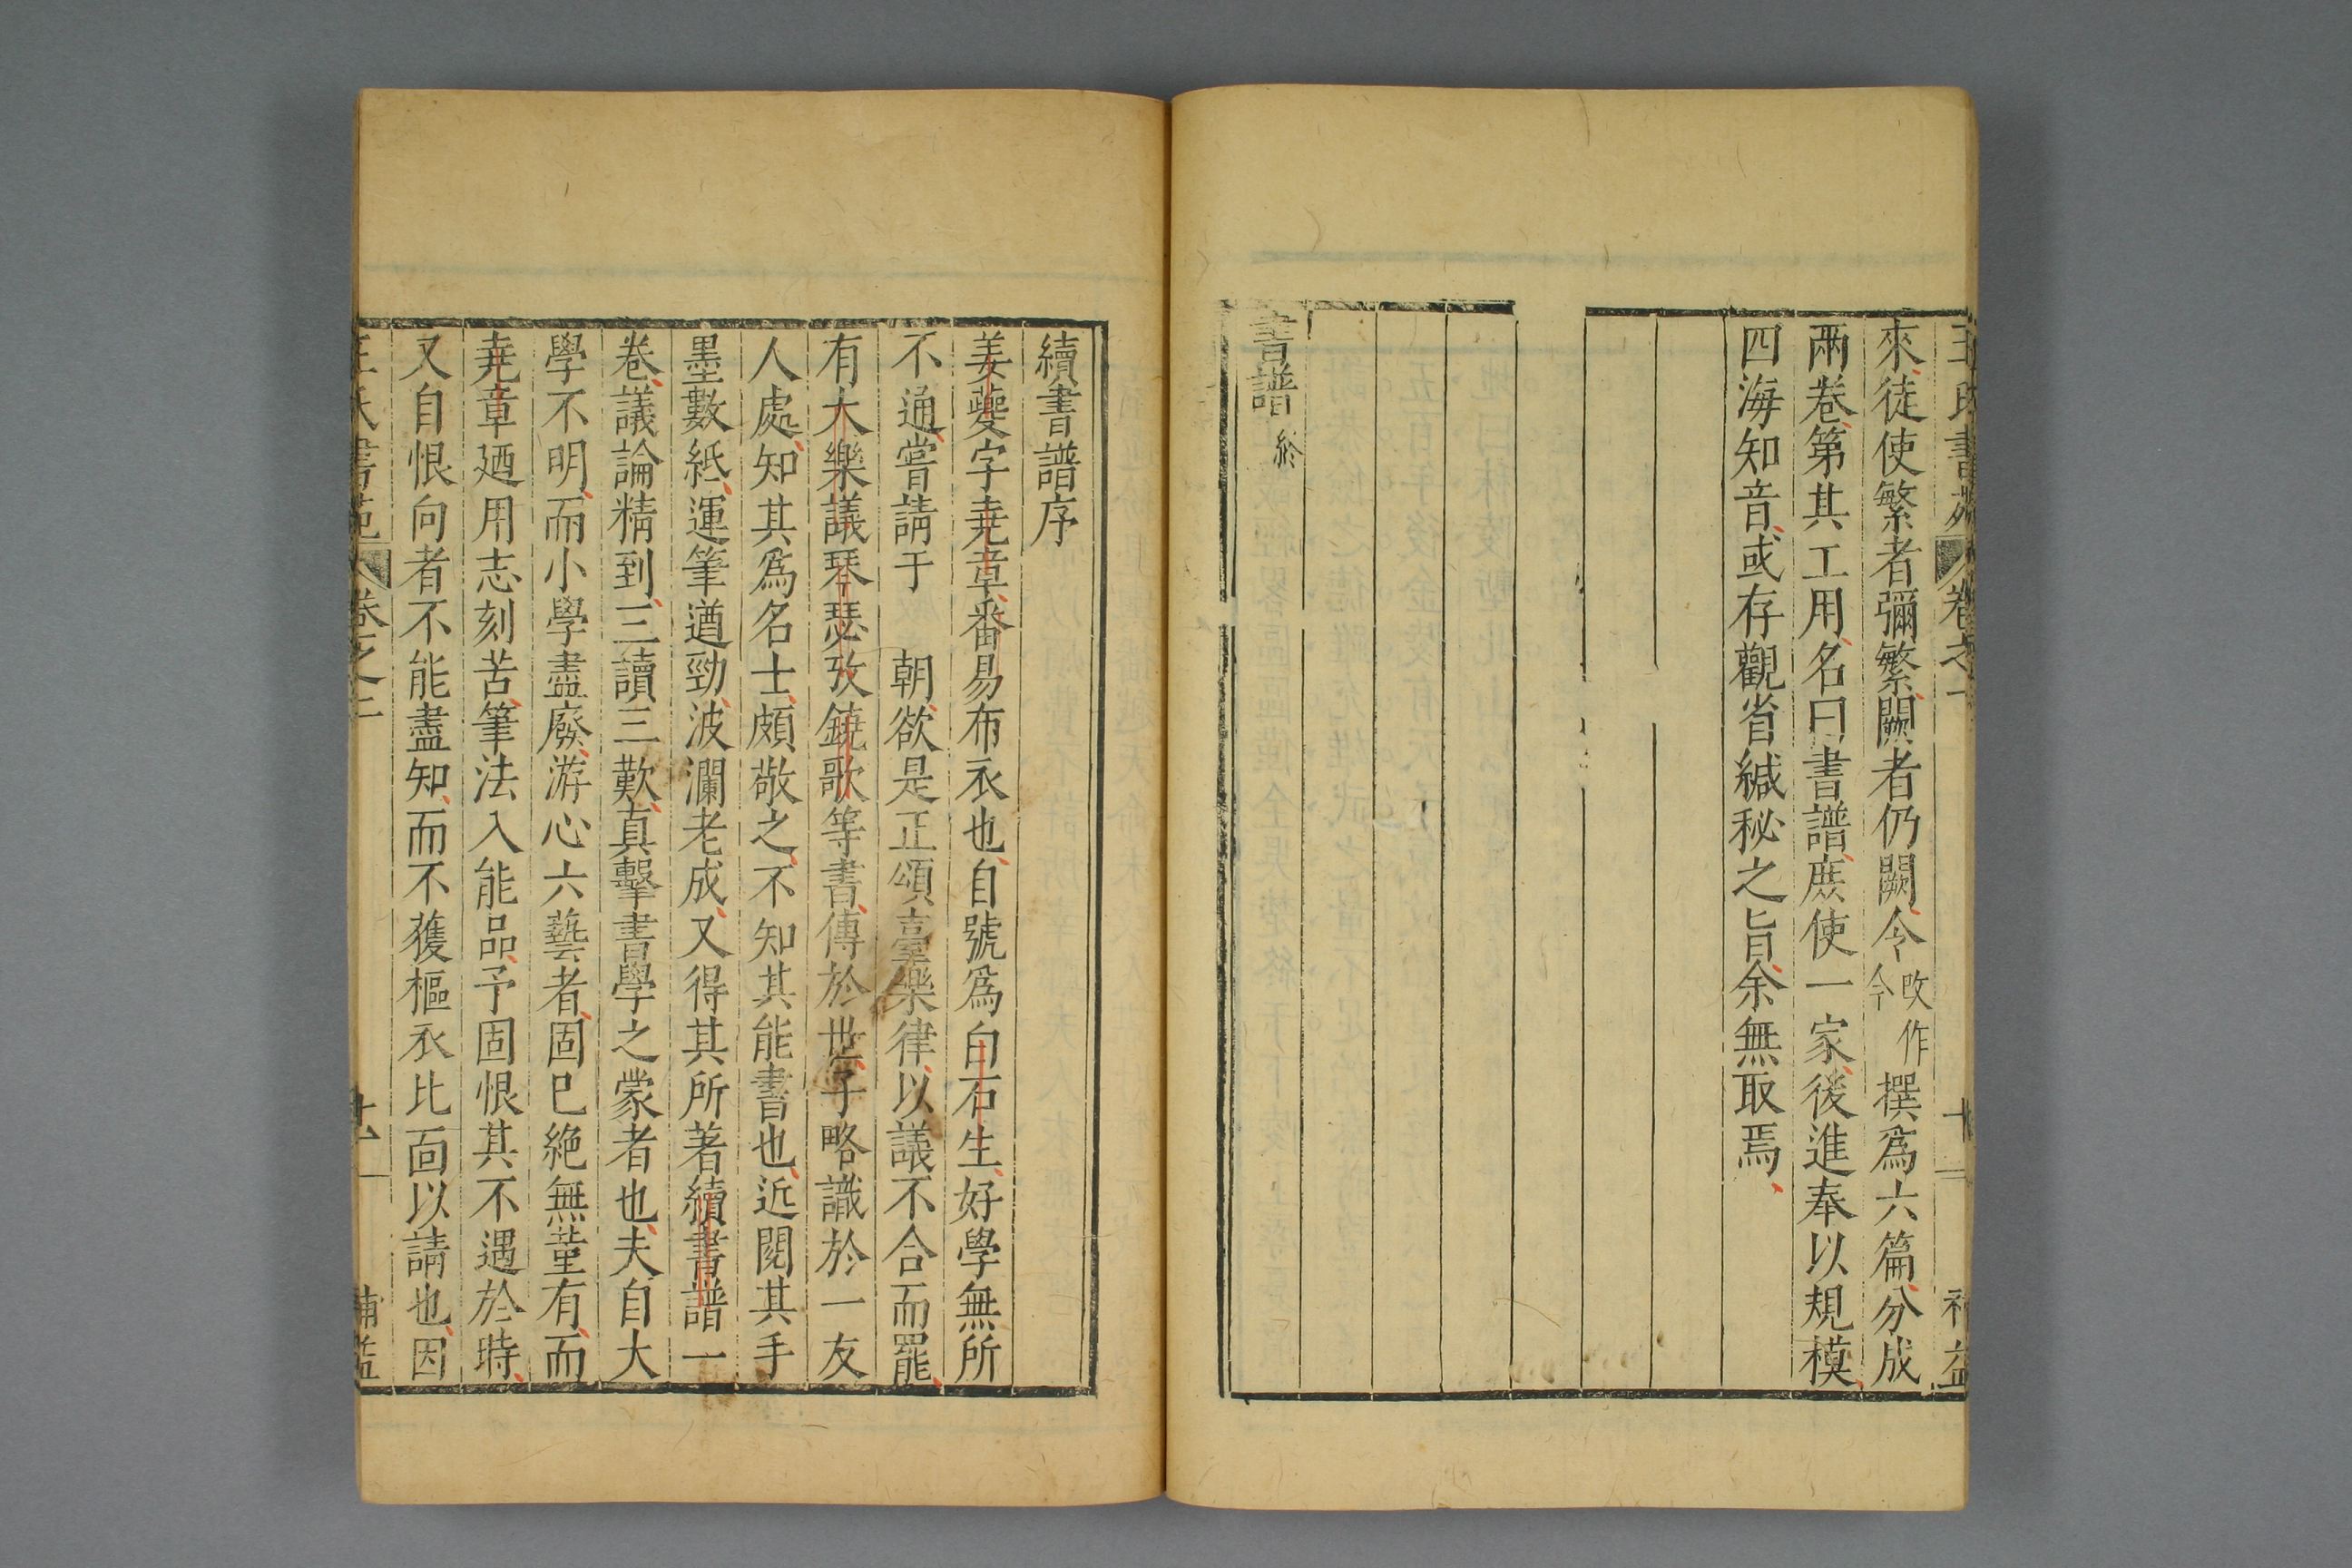 王氏書苑 卷之一 十一 補益
來徒使繁者彌繁闕者仍闕今改作今撰爲六篇分成
兩卷第其工用名曰書譜庻使一家後進奉以規模
四海知音或存觀省緘秘之旨余無取焉
書譜終
續書譜序
姜夔字堯章番易布衣也自號爲白石生好學無所
不通嘗請于 朝欲是正頌臺樂律以議不合而罷
有大樂議琴瑟攷鐃歌等書傳於世予略識於一友
人處知其爲名士頗敬之不知其能書也近閱其手
墨數紙運筆遒勁波瀾老成又得其所著續書譜一
卷議論精到三讀三歎真擊書學之蒙者也夫自大
學不明而小學盡廢游心六藝者固已絶無菫有而
堯章廼用志刻苦筆法入能品予固恨其不遇於時
又自恨向者不能盡知而不獲樞衣北面以請也因
王氏書苑 卷之二 補益